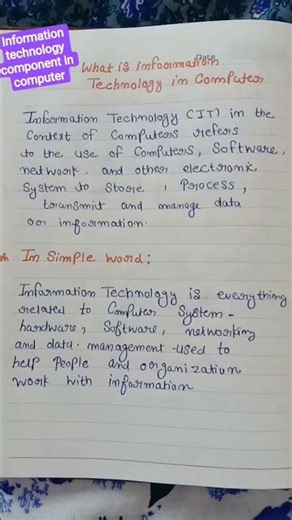 Information
technology
component in
computer
Date
What is Information
Technology in Computer
Information Technology (IT) in the
Context of Computers refers
to the use of Computers, Software,
network, and other electronic
System to Store, Process,
transmit and manage data
or information.
In Simple word:
Information Technology is everything
related to Computer System -
hardware, Software, networking
and data. management - used to
help people and organization
work with information